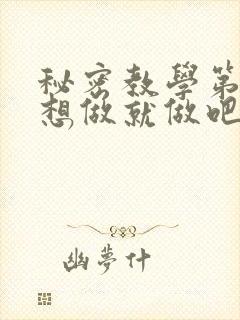 秘密教學第
想做就做吧
幽夢什